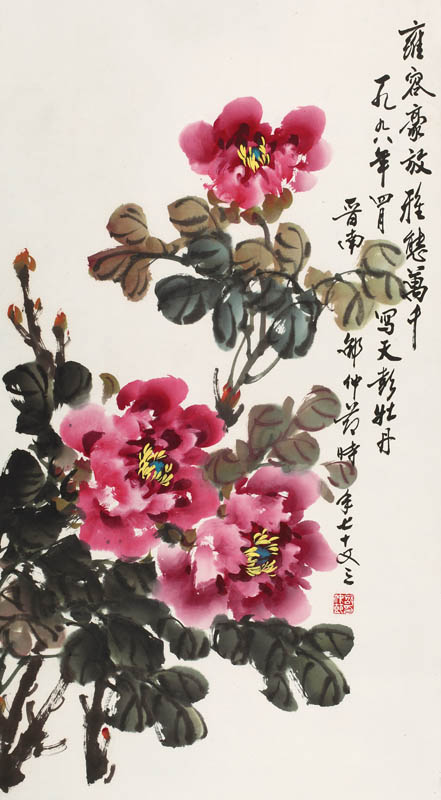 雍容豪放雅態萬千
一九九八年四月寫天彭牡丹
晋南鄒仲 時年七十又三